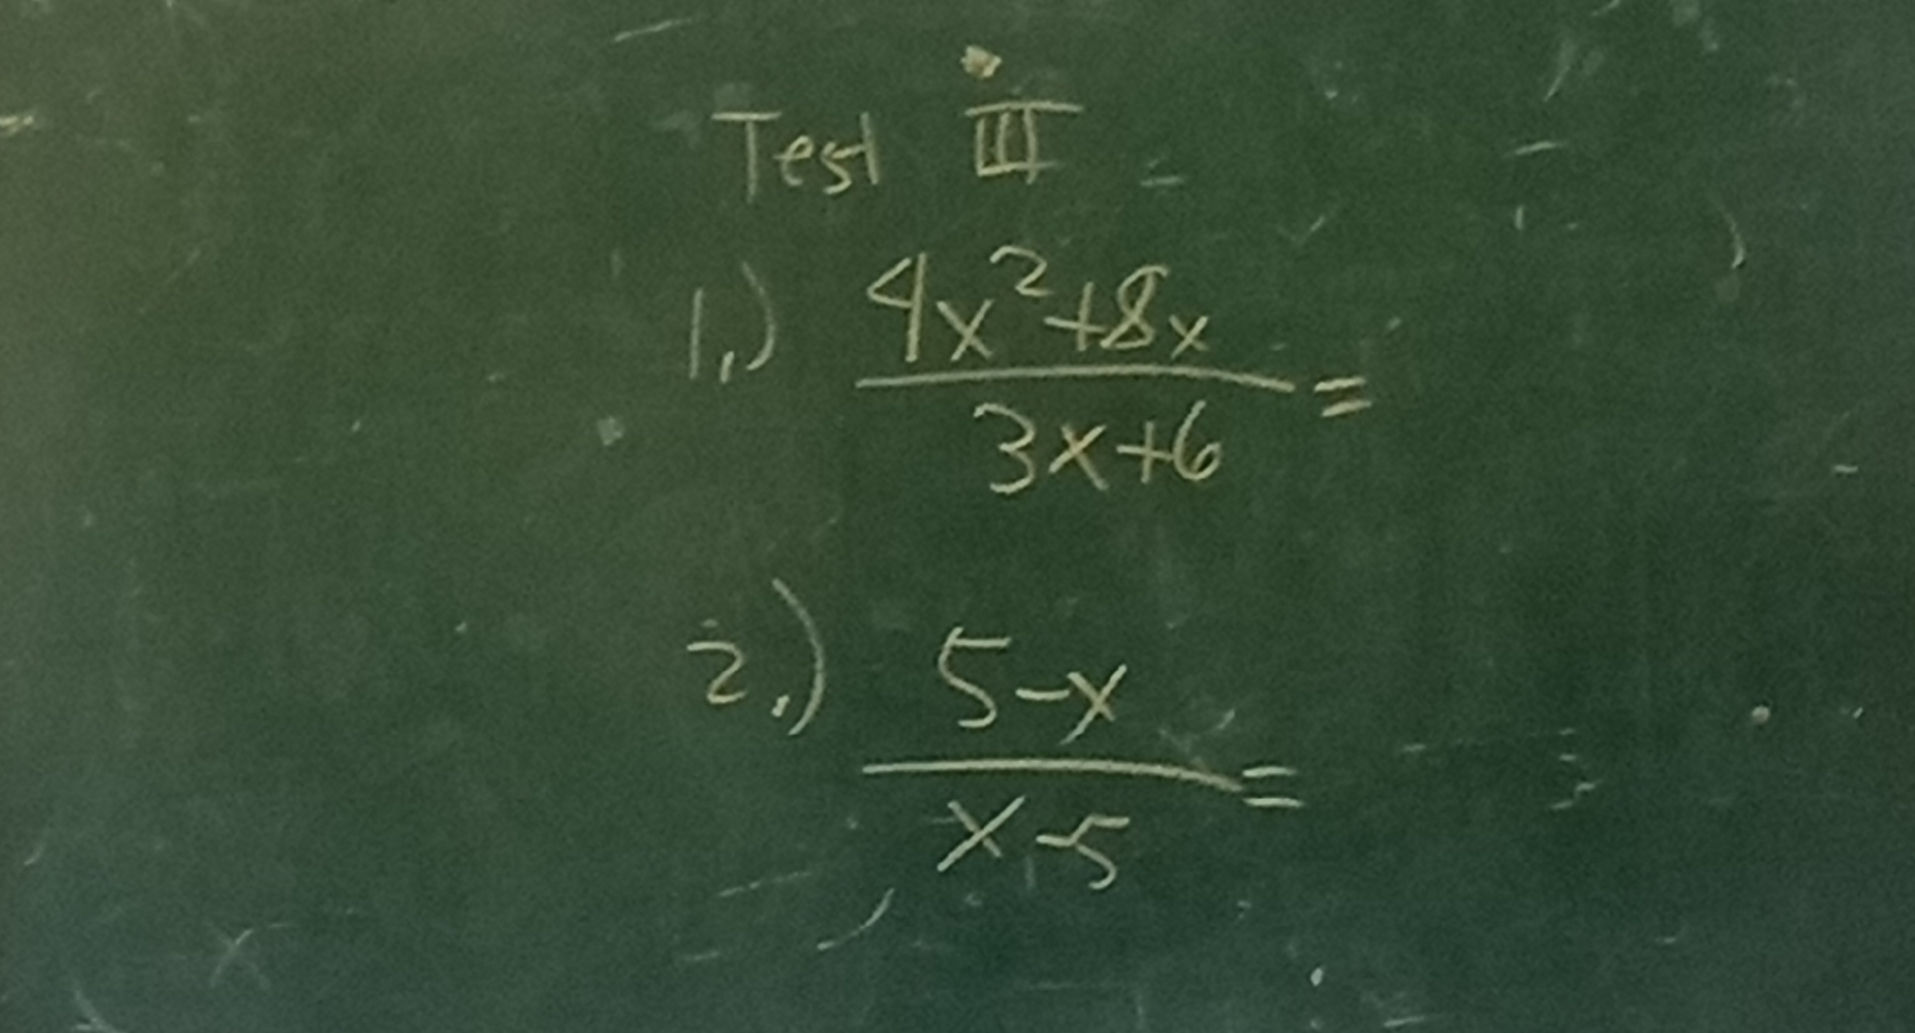 Test III
1.) 4x²+8x
3x+6 =
2.) 5-x
x-5 =